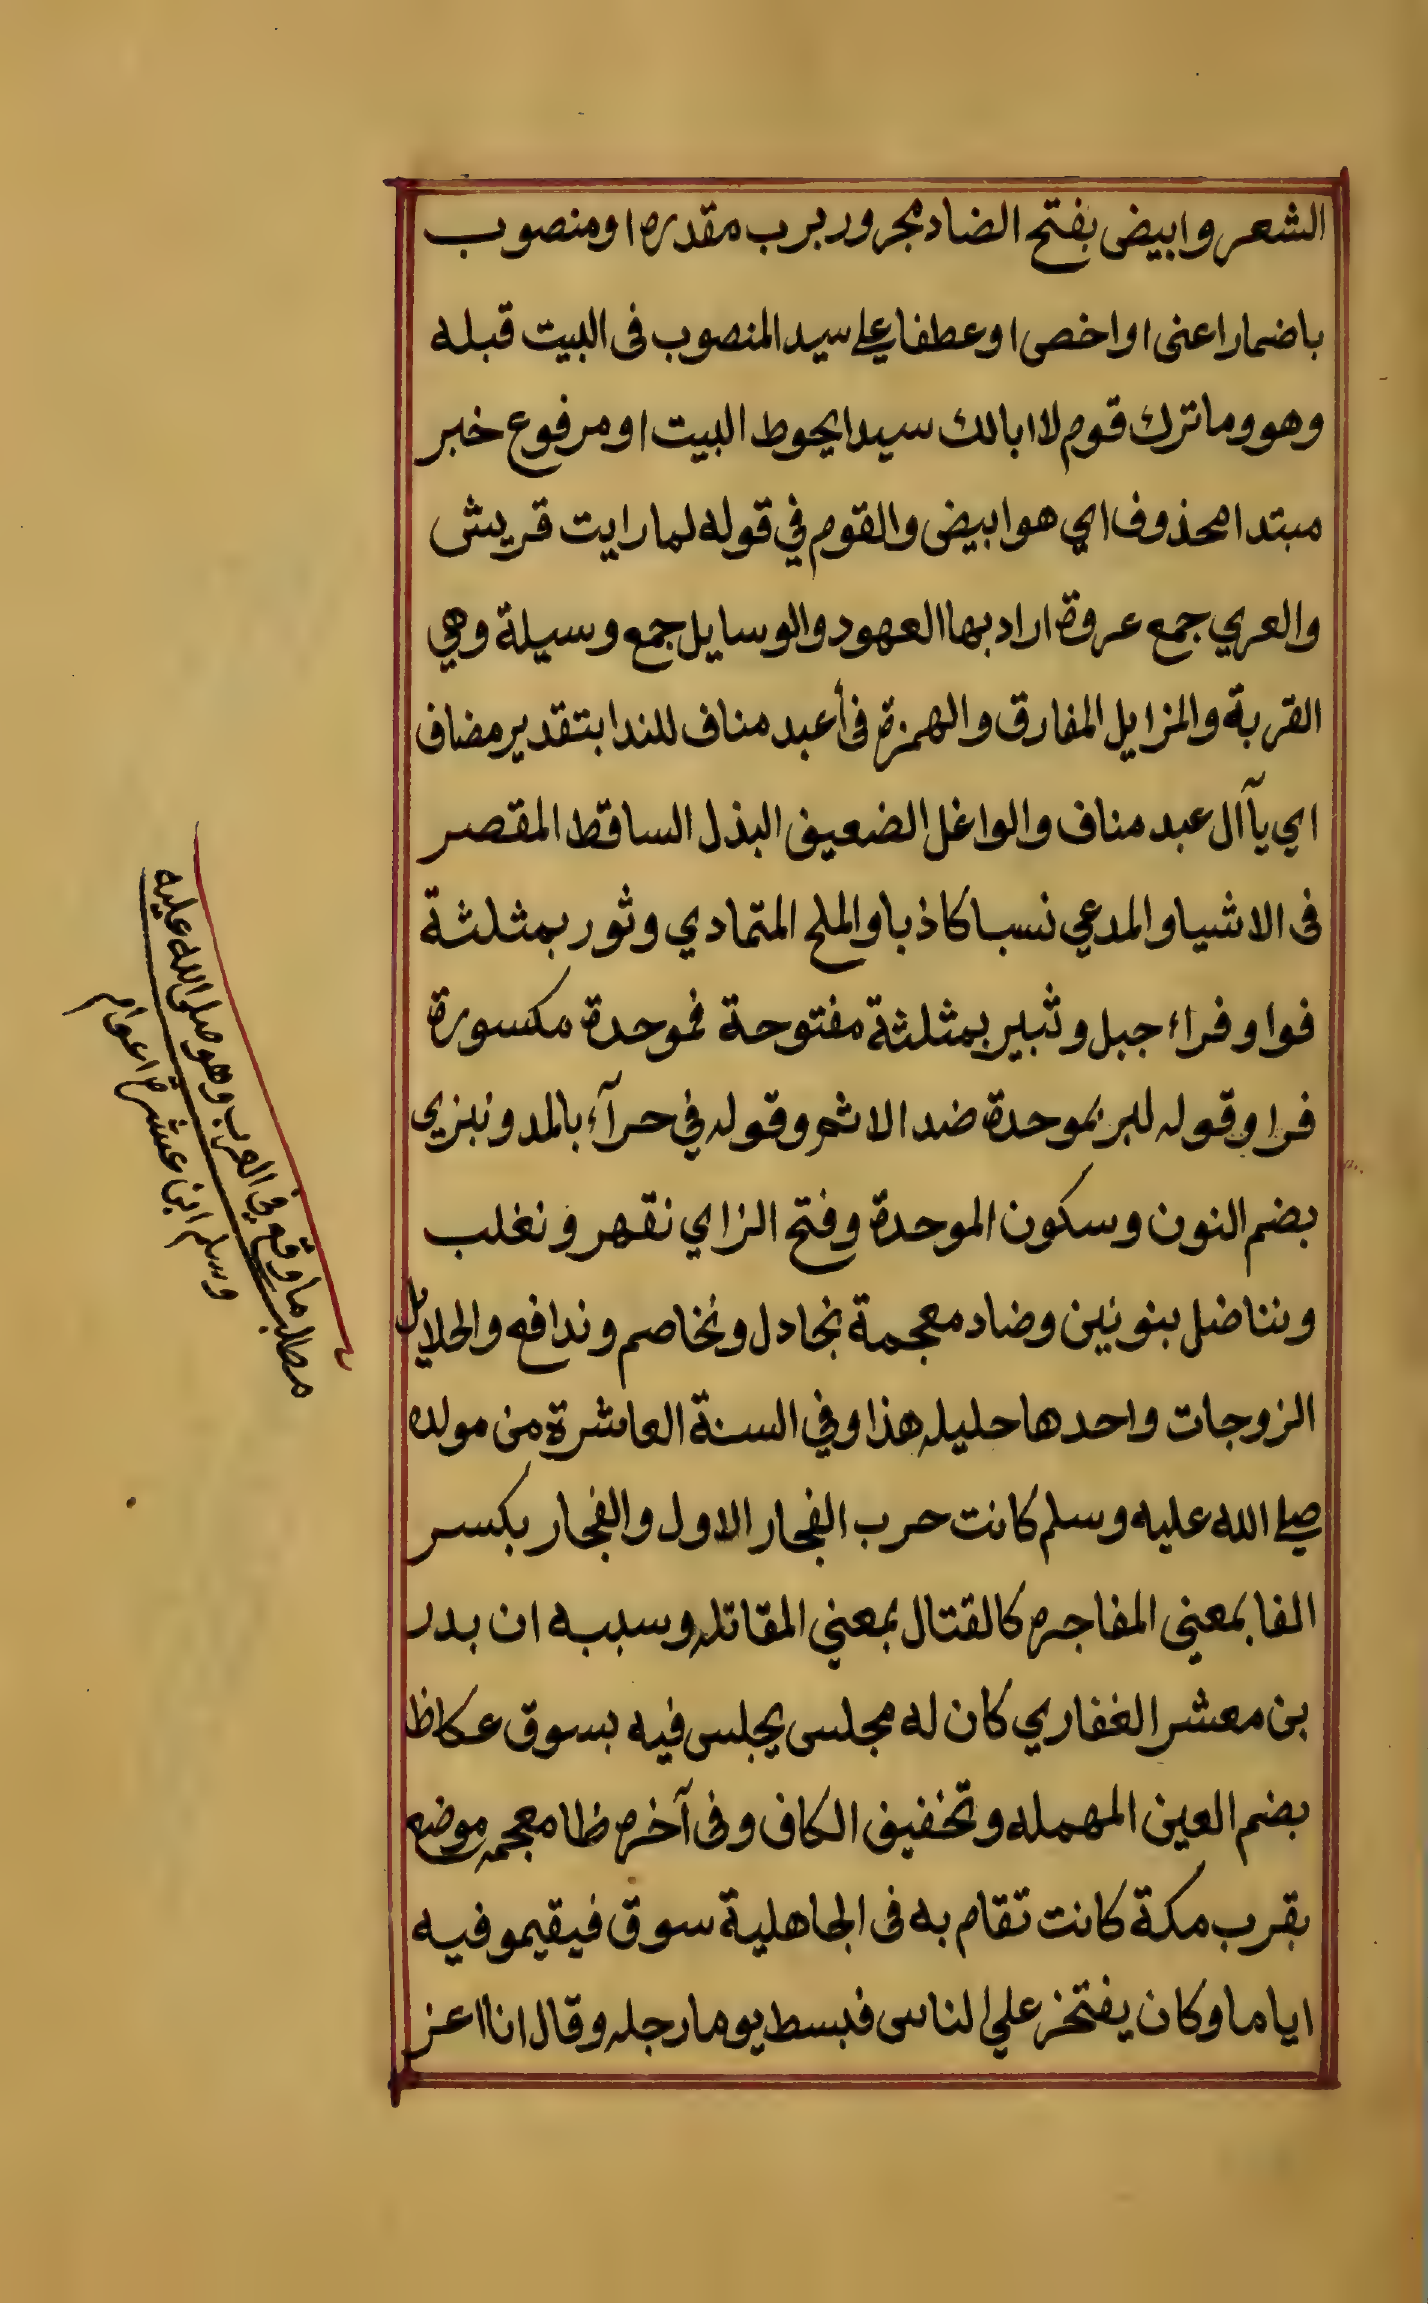 الشعر وابيض بفتح الضاد مجرور برب مقدره او منصوب
باضمار اعنى او اخص او عطفا على سيد المنصوب فى البيت قبله
وهو وما ترك قوم لا ابالك سيدا يحوط البيت او مرفوع خبر
مبتدا محذوف اي هو ابيض والقوم في قوله لما رايت قريش
والعري جمع عروة اراد بها العهود والوسايل جمع وسيلة وهي
القربة والمزايل المفارق والهمزة فى أعبد مناف للندا بتقدير مضاف
اي يا آل عبد مناف والواغل الضعيف البذل الساقط المقصر
فى الاشيا والمدعي نسبا كاذبا والملح المتمادي وثور بمثلثة
فواو فراء جبل وثبير بمثلثة مفتوحة فموحدة مكسورة
فرا وقوله لبر بموحدة ضد الاثم وقوله في حرآء بالمد ونبزي
بضم النون وسكون الموحدة وفتح الزاي نقهر ونغلب
ونناضل بنونين وضاد معجمة نجادل ونخاصم وندافع والحلايل
الزوجات واحدها حليله هذا وفي السنة العاشرة من مولده
صلى الله عليه وسلم كانت حرب الفجار الاول والفجار بكسر
الفا بمعنى المفاجره كالقتال بمعني المقاتله وسببه ان بدر
بن معشر الغفاري كان له مجلس يجلس فيه بسوق عكاظ
بضم العين المهمله وتخفيف الكاف وفى آخره ظا معجمه موضع
بقرب مكة كانت تقام به فى الجاهلية سوق فيقيمو فيه
اياما وكان يفتخر علي الناس فبسط يوما رجله وقال انا اعز
مطلب ما وقع في العرب وهو صلى الله عليه
وسلم ابن عشرة اعوام